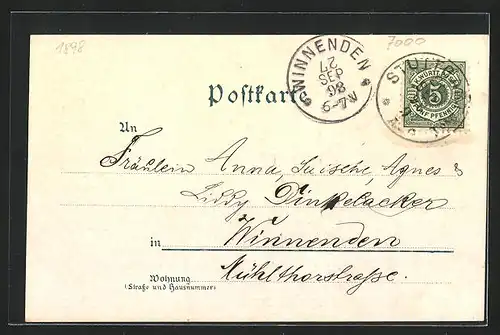 1898
7000
WINNENDEN
27
SEP
98
6-7N
STUTTG
K.WÜRTT.POST
5
FÜNF PFENNIG
Postkarte
An
Fräulein Anna, Luische, Agnes &
Liddy Dinkelacker
in Winnenden
Wohnung Mühlthorstraße.
(Straße und Hausnummer)